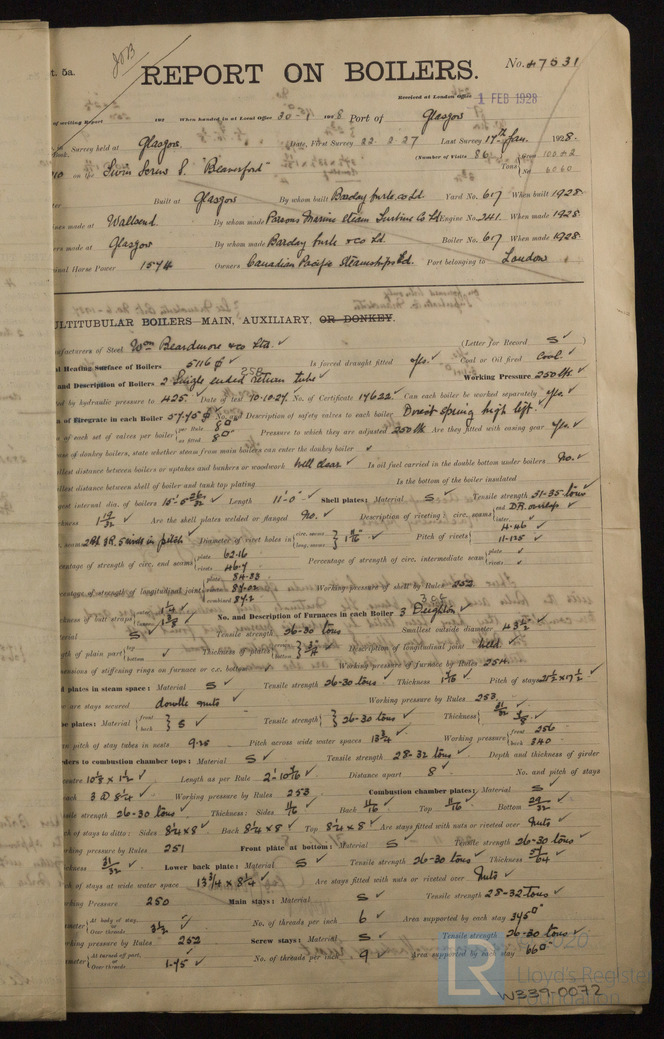 JOB
t. 5a.
REPORT ON BOILERS.
No. 47631
Received at London Office 1 FEB 1928
of writing Report 192 When handed in at Local Office 30-1-1928. Port of Glasgow
Survey held at Glasgow. Date, First Survey 22.2.27 Last Survey 17th Jan. 1928.
on the Twin Screw S. "Beaverford" (Number of Visits 86) Tons Gross 10042 Net 6060
Built at Glasgow By whom built Barclay Curle & Co Ld Yard No. 617 When built 1928
made at Wallsend. By whom made Parsons Marine Steam Turbine Co Ld Engine No. 241. When made 1928
made at Glasgow By whom made Barclay Curle & Co Ld. Boiler No. 617 When made 1928
Horse Power 1574 Owners Canadian Pacific Steamships Ld. Port belonging to London
ULTITUBULAR BOILERS—MAIN, AUXILIARY, OR DONKEY.
ufacturers of Steel Wm Beardmore & Co Ltd. (Letter for Record S)
Heating Surface of Boilers 5116 Is forced draught fitted yes. Coal or Oil fired Coal
and Description of Boilers 2 Single ended return tube Working Pressure 250 lb
by hydraulic pressure to 425 Date of test 10.10.27. No. of Certificate 17622. Can each boiler be worked separately yes.
of Firegrate in each Boiler 57.75 No. and Description of safety valves to each boiler Direct spring high lift.
of each set of valves per boiler per Rule as fitted Pressure to which they are adjusted 250 lb Are they fitted with easing gear yes.
of donkey boilers, state whether steam from main boilers can enter the donkey boiler
distance between boilers or uptakes and bunkers or woodwork Well clear. Is oil fuel carried in the double bottom under boilers No.
distance between shell of boiler and tank top plating Is the bottom of the boiler insulated
internal dia. of boilers Length 11'-0" Shell plates: Material S Tensile strength 31-35 tons
1 19/32 Are the shell plates welded or flanged No. Description of riveting: circ. seams end DR. overlap
inter.
seams 2 Bt. S.R. 5 rivets in pitch Diameter of rivet holes in circ. seams long. seams Pitch of rivets 4.46 11.125
Percentage of strength of circ. end seams plate 62.16 rivets 46.7 Percentage of strength of circ. intermediate seam plate rivets
Percentage of strength of longitudinal joint plate rivets combined 87.2 Working pressure of shell by Rules 252
of butt straps No. and Description of Furnaces in each Boiler 3 Deighton
S Tensile strength 26-30 tons Smallest outside diameter 43 1/2
of plain part top bottom Thickness of plates Description of longitudinal joint Weld
Dimensions of stiffening rings on furnace or c.c. bottom Working pressure of furnace by Rules 254.
plates in steam space: Material S Tensile strength 26-30 tons Thickness 1 1/16 Pitch of stays 21 1/2 x 17 1/2
are stays secured double nuts Working pressure by Rules 253
plates: Material front back S Tensile strength 26-30 tons Thickness 31/32
pitch of stay tubes in nests 9.25 Pitch across wide water spaces 13 3/4 Working pressure front 256 back 340
Girders to combustion chamber tops: Material S Tensile strength 28-32 tons Depth and thickness of girder
centre 10 5/8 x 1 1/2 Length as per Rule Distance apart 8 No. and pitch of stays
each 3 @ 8 1/4 Working pressure by Rules 253 Combustion chamber plates: Material S
strength 26-30 tons Thickness: Sides 11/16 Back 11/16 Top 11/16 Bottom 29/32
of stays to ditto: Sides 8 1/4 x 8 Back 8 1/4 x 8 Top 8 1/4 x 8 Are stays fitted with nuts or riveted over Nuts
pressure by Rules 251 Front plate at bottom: Material S Tensile strength 26-30 tons
31/32 Lower back plate: Material S Tensile strength 26-30 tons Thickness
of stays at wide water space 13 3/4 x 8 1/4 Are stays fitted with nuts or riveted over Nuts
Working Pressure 250 Main stays: Material S Tensile strength 28-32 tons
At body of stay, or Over threads 3 1/2 No. of threads per inch 6 Area supported by each stay 345
pressure by Rules 252 Screw stays: Material S Tensile strength 26-30 tons
At turned off part, or Over threads 1.75 No. of threads per inch 9 Area supported by each stay 66
LR
© 2020
Lloyd's Register
Foundation
W339-0072